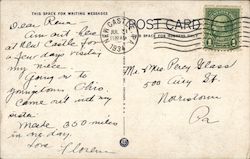 THIS SPACE FOR WRITING MESSAGES
POST CARD
NEW CASTLE, PA.
1934
Dear Rena
Am out here
at New Castle for
a few days visiting
my niece
Going on to
Youngstown, Ohio,
Came out with my
sister
Made 350 miles
in one day.
Love Florence
Mr & Mrs Percy Glass
500 Astor St.
Norristown
Pa